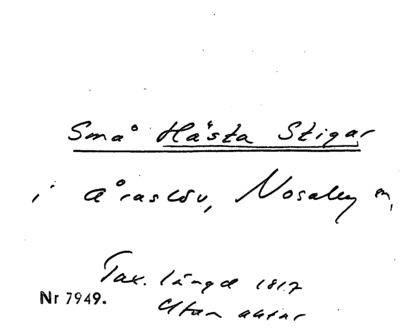 Små Hästa Stigar
i Åraslöv, Nosaby sn,
Tax. längd 1817
Nr 7949.
Utan aktnr